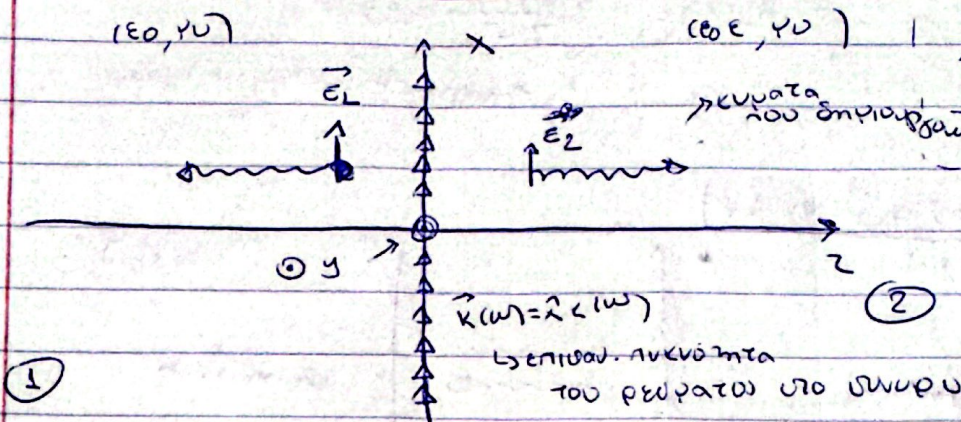 (ε0, μ0) (ε0ε, μ0)
x
E⃗1 E⃗2 κυματα
που δημιουργουν
⊙ y z
K⃗(ω)=x̂ K(ω) ②
↳ επιφαν. πυκνότητα
① του ρεύματος στο συνορο